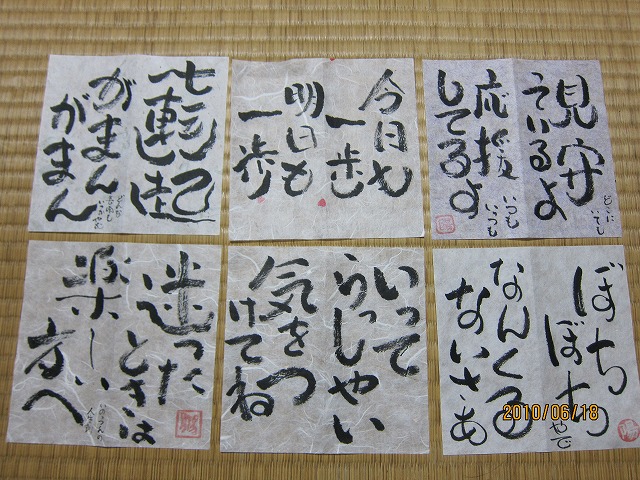 七転八起
がまん
がまん
どんな
いつかやむ
今日も
一歩
明日も
一歩
見守
っているよ
応援
してるよ
どこに
いても
いつも
いつも
迷った
ときは
楽しい
方へ
いって
らっしゃい
気をつ
けてね
ぼち
ぼち
やで
なんくる
ないさあ
2010/06/18